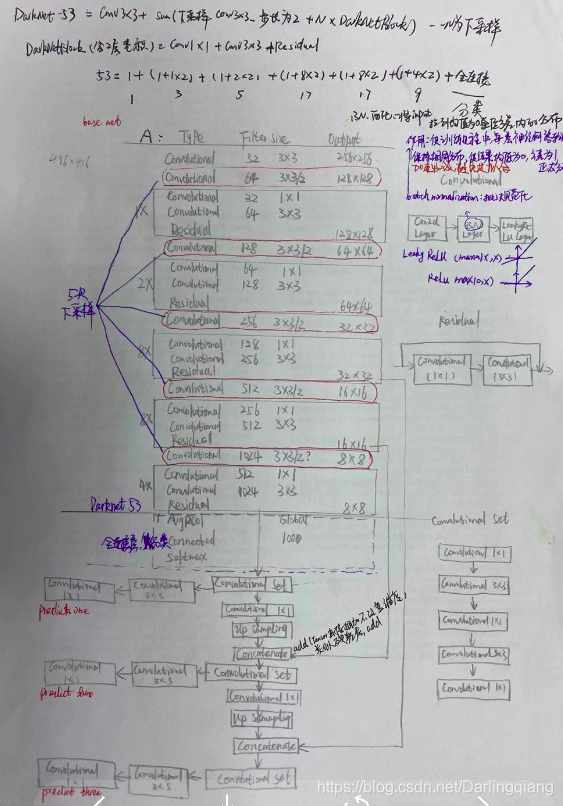 DarkNet-53 = Conv3×3 + sum(下采样 conv3×3 步长为2 + N × DarkNetBlock) - N为下采样
DarkNetBlock(含2层卷积) = Conv1×1 + Conv3×3 + Residual
53 = 1 + (1+1×2) + (1+2×2) + (1+8×2) + (1+8×2) + (1+4×2) + 全连接
1 3 5 17 17 9 分类
base net
416×416
A: Type Filter size Output
Convolutional 32 3×3 256×256
Convolutional 64 3×3/2 128×128
1×
Convolutional 32 1×1
Convolutional 64 3×3
Residual 128×128
Convolutional 128 3×3/2 64×64
2×
Convolutional 64 1×1
Convolutional 128 3×3
Residual 64×64
Convolutional 256 3×3/2 32×32
8×
Convolutional 128 1×1
Convolutional 256 3×3
Residual 32×32
Convolutional 512 3×3/2 16×16
8×
Convolutional 256 1×1
Convolutional 512 3×3
Residual 16×16
Convolutional 1024 3×3/2? 8×8
4×
Convolutional 512 1×1
Convolutional 1024 3×3
Residual 8×8
5次
下采样
Darknet 53
Avgpool Global
Connected 1000
softmax
Convolutional
batch normalization:
Conv2d
Layer
BN
Layer
Leaky Re
Lu Layer
Leaky ReLU
ReLU max(0,x)
Residual
Convolutional
(1×1)
Convolutional
(3×3)
Convolutional Set
Convolutional 1×1
Convolutional 3×3
Convolutional 1×1
Convolutional 3×3
Convolutional 1×1
Convolutional
1×1
Convolutional
3×3
Convolutional Set
predict one
Convolutional 1×1
Up Sampling
Concatenate
Convolutional
1×1
Convolutional
3×3
Convolutional Set
predict two
Convolutional 1×1
Up Sampling
Concatenate
Convolutional
1×1
Convolutional
3×3
Convolutional Set
predict three
https://blog.csdn.net/Darlingqiang